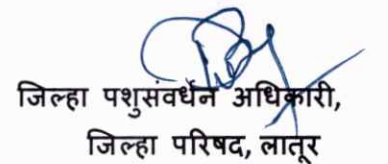 जिल्हा पशुसंवर्धन अधिकारी,
जिल्हा परिषद, लातूर